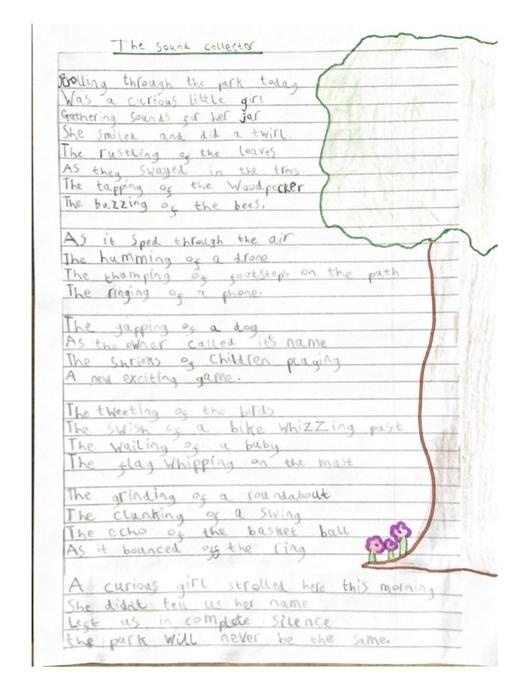 The sound collector
Strolling through the park today
Was a curious little girl
Gathering sounds for her jar
She smiled and did a twirl.
The rustling of the leaves
As they swayed in the trees
The tapping of the Woodpecker
The buzzing of the bees.
As it sped through the air
The humming of a drone
The thumping of footsteps on the path
The ringing of a phone.
The yapping of a dog
As the owner called it's name
The shrieks of children playing
A new exciting game.
The tweeting of the birds
The swish of a bike whizzing past
The wailing of a baby
The flag whipping on the mast
The grinding of a roundabout
The clunking of a swing
The echo of the basket ball
As it bounced off the ring
A curious girl strolled here this morning
She didn't tell us her name
Left us in complete silence
the park will never be the same.